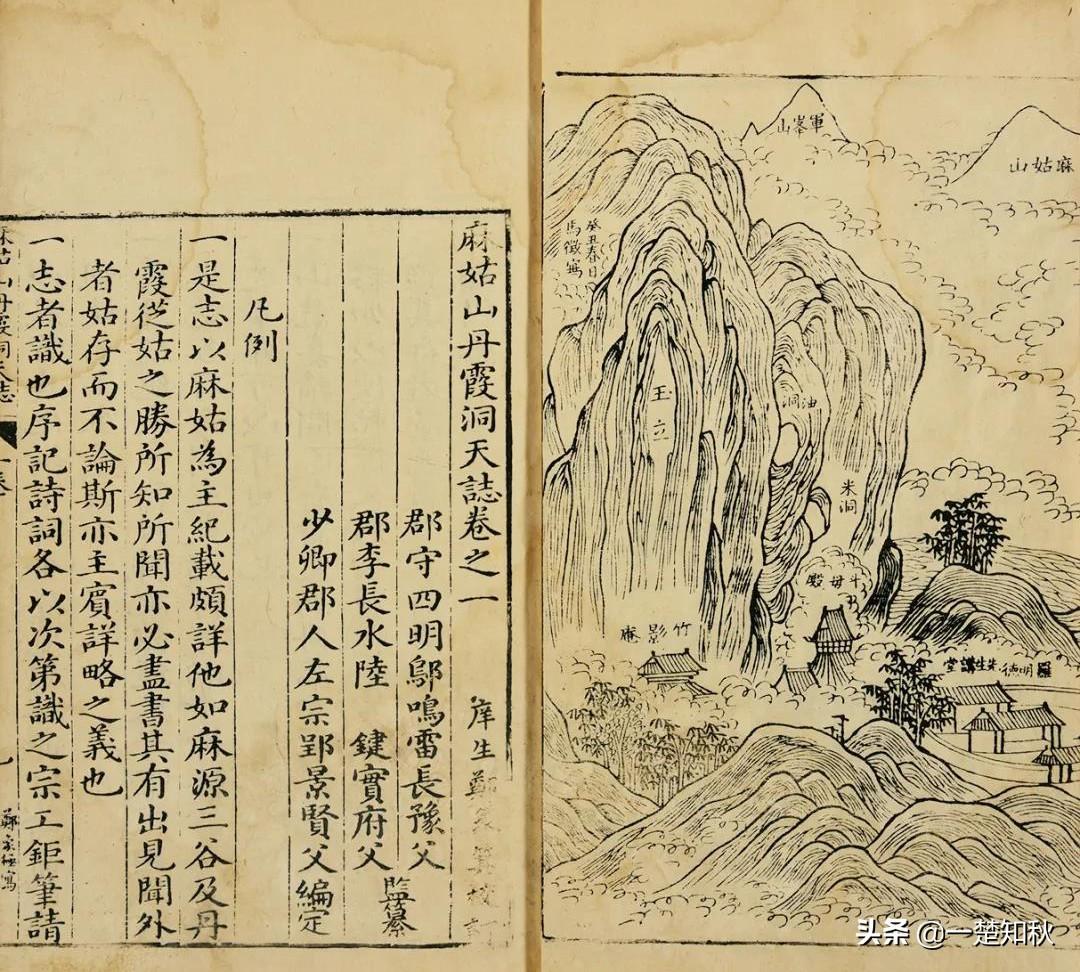 軍峯山
麻姑山
癸丑春日
馬徵寫
玉立
油洞
米洞
斗母殿
竹影庵
羅明德先生講堂
麻姑山丹霞洞天誌卷之一
庠生鄭
郡守四明鄔鳴雷長豫父
郡李長水陸 鍵實府父
監纂
少卿郡人左宗郢景賢父編定
凡例
一是志以麻姑為主紀載頗詳他如麻源三谷及丹
霞從姑之勝所知所聞亦必盡書其有出見聞外
者姑存而不論斯亦主賓詳略之義也
一志者識也序記詩詞各以次第識之宗工鉅筆請
麻姑山丹霞洞天志
一卷
一
头条 @一楚知秋